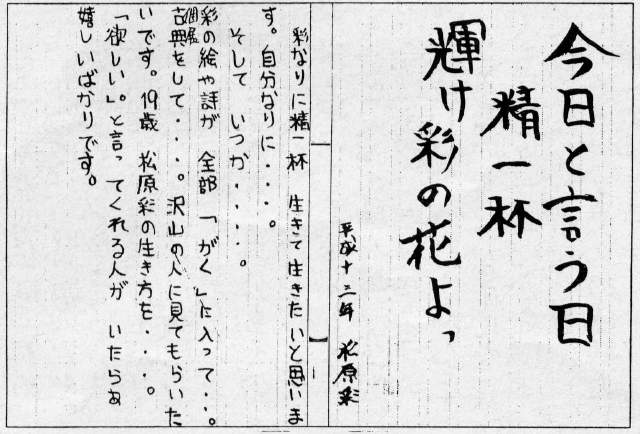 今日と言う日
精一杯
輝け彩の花よっ
平成十二年 松原彩
彩なりに精一杯 生きて生きたいと思いま
す。自分なりに・・・。
そして いつか・・・・。
彩の絵や詩が 全部 「がく」に入って・・。
個展
古典をして・・・。沢山の人に見てもらいた
いです。19歳 松原彩の生き方を・・・。
「欲しい」。と言ってくれる人が いたらぁ
嬉しいばかりです。